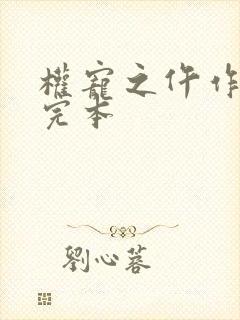 權寵之仵作
完本
劉心蓉